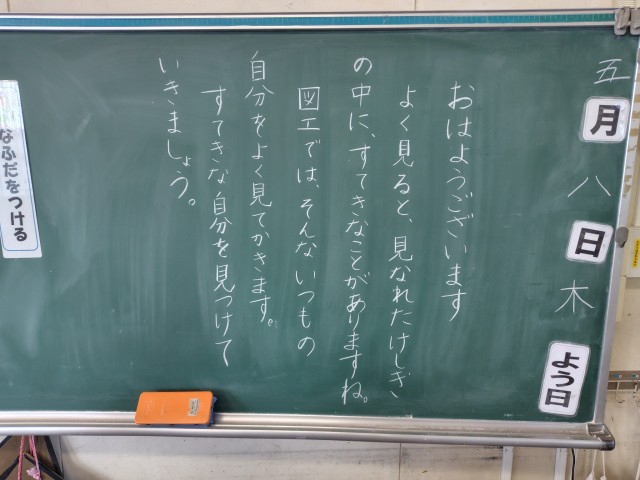 五月八日木よう日
おはようございます
よく見ると、見なれたけしき
の中に、すてきなことがありますね。
図工では、そんないつもの
自分をよく見てかきます。
すてきな自分を見つけて
いきましょう。
なふだをつける